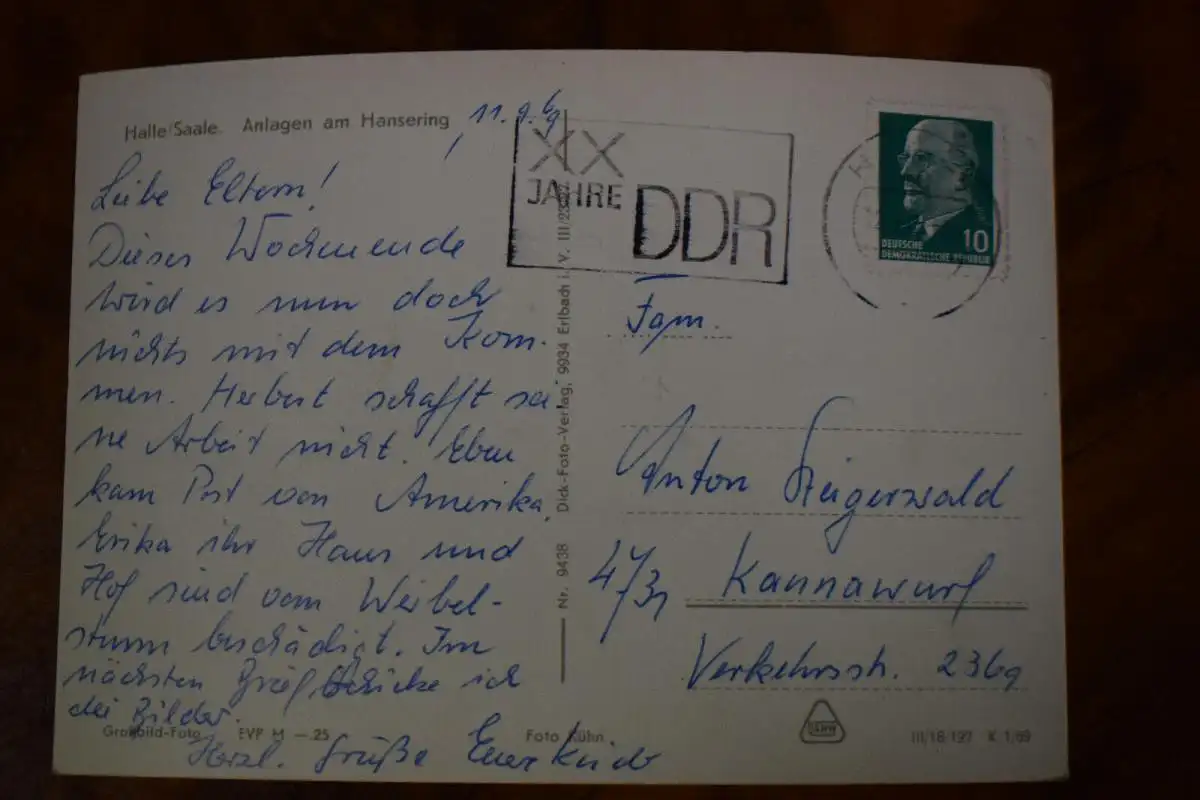 Halle/Saale. Anlagen am Hansering
11.9.69
Liebe Eltern!
Dieses Wochenende
wird es nun doch
nichts mit dem Kom-
men. Herbert schafft sei-
ne Arbeit nicht. Eben
kam Post von Amerika,
Erika ihr Haus und
Hof sind vom Wirbel-
sturm beschädigt. Im
nächsten Brief schicke ich
die Bilder.
Herzl. Grüße Eure Kinder
XX
JAHRE DDR
10
DEUTSCHE
DEMOKRATISCHE REPUBLIK
Fam.
Anton Steigerwald
Kannawurf
Verkehrsstr. 236g
Nr. 9438 Dick-Foto-Verlag, 9934 Erlbach i. V.
EVP M —.25
Foto Kühn
III/18/197 K 1/69